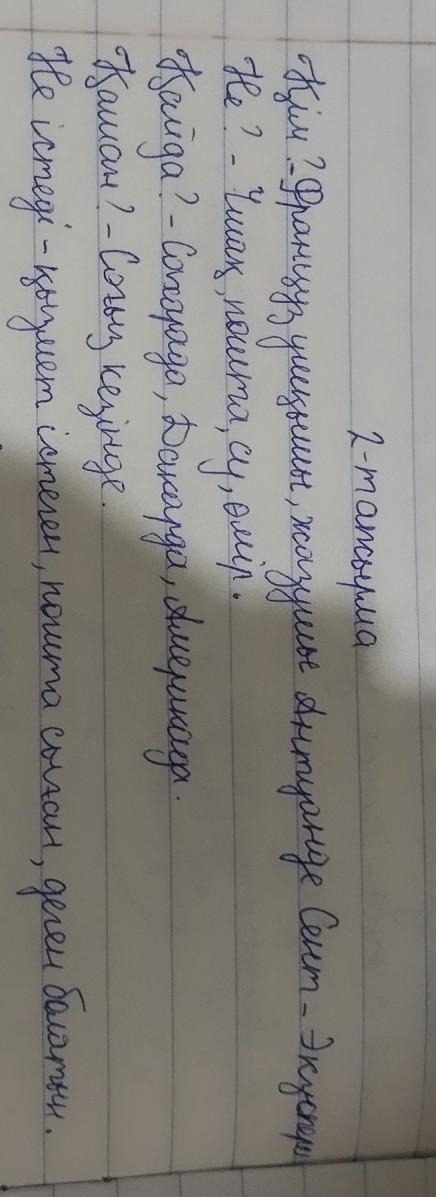 2-тапсырма
Кім? - Француз ұшқышы, жазушы Антуанде Сент-Экзюпери
Не? - Ұшақ, пошта, су, өмір.
Қайда? - Сахарада, Дакарда, Америкада.
Қашан? - Соғыс кезінде.
Не істеді - қызмет істеген, пошта деген болатын.